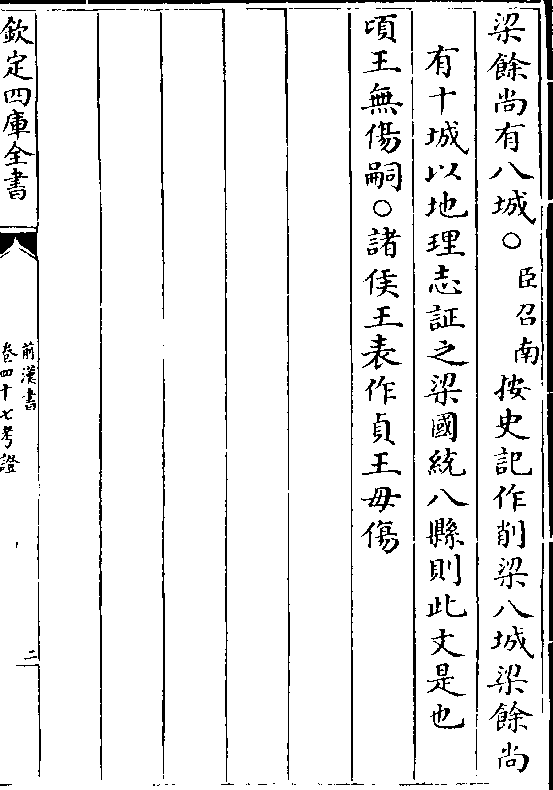 梁餘尚有八城○臣召南按史記作削梁八城梁餘尚
有十城以地理志証之梁國統八縣則此文是也
頃王無傷嗣○諸侯王表作貞王毋傷
欽定四庫全書
前漢書
卷四十七考證
二